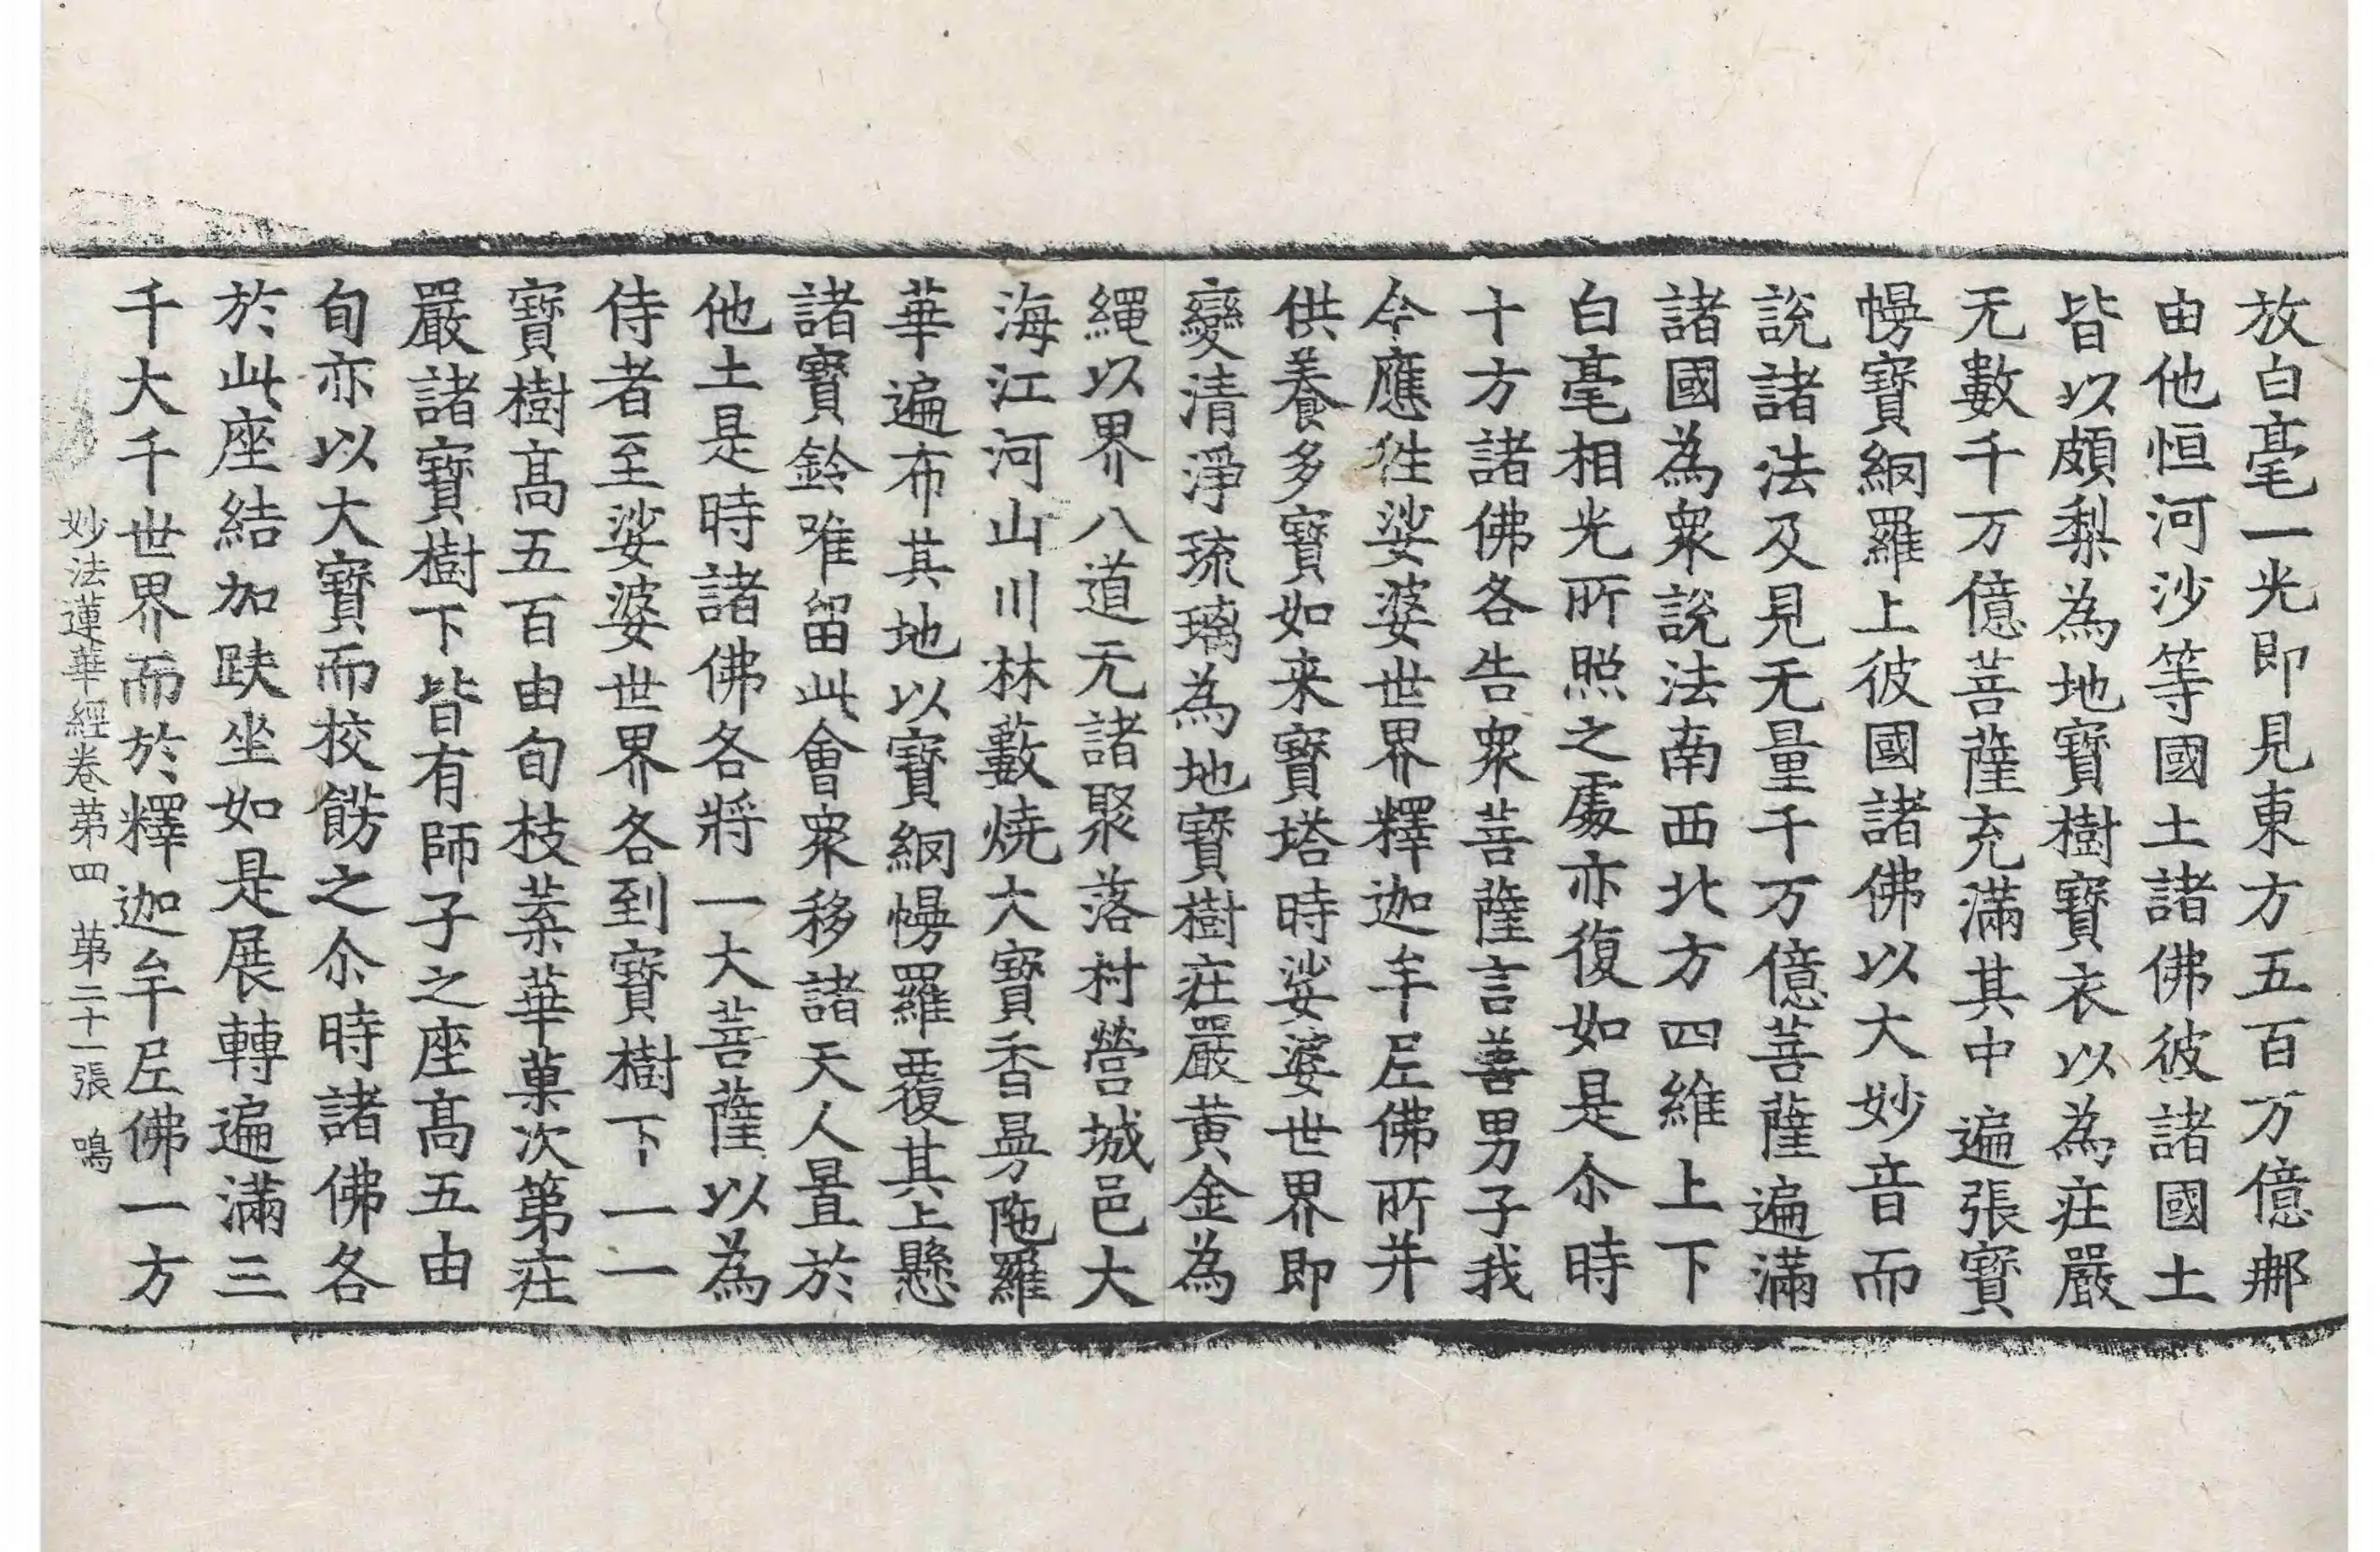 放白毫一光即見東方五百万億𨚗
由他恒河沙等國土諸佛彼諸國土
皆以頗梨為地寶樹寶衣以為庄嚴
无數千万億菩薩充滿其中遍張寶
幔寶網羅上彼國諸佛以大妙音而
說諸法及見无量千万億菩薩遍滿
諸國為衆說法南西北方四維上下
白毫相光所照之處亦復如是尒時
十方諸佛各告衆菩薩言善男子我
今應徃娑婆世界釋迦牟尼佛所并
供養多寶如来寶塔時娑婆世界即
變清淨琉璃為地寶樹庄嚴黄金為
繩以界八道无諸聚落村營城邑大
海江河山川林藪燒大寶香曼陁羅
華遍布其地以寶網幔羅覆其上懸
諸寶鈴唯留此會衆移諸天人置於
他土是時諸佛各將一大菩薩以為
侍者至娑婆世界各到寶樹下一一
寶樹髙五百由旬枝葉華菓次第庄
嚴諸寶樹下皆有師子之座髙五由
旬亦以大寶而校餝之尒時諸佛各
於此座結加趺坐如是展轉遍滿三
千大千世界而於釋迦牟尼佛一方
妙法蓮華經卷第四 第二十一張 鳴